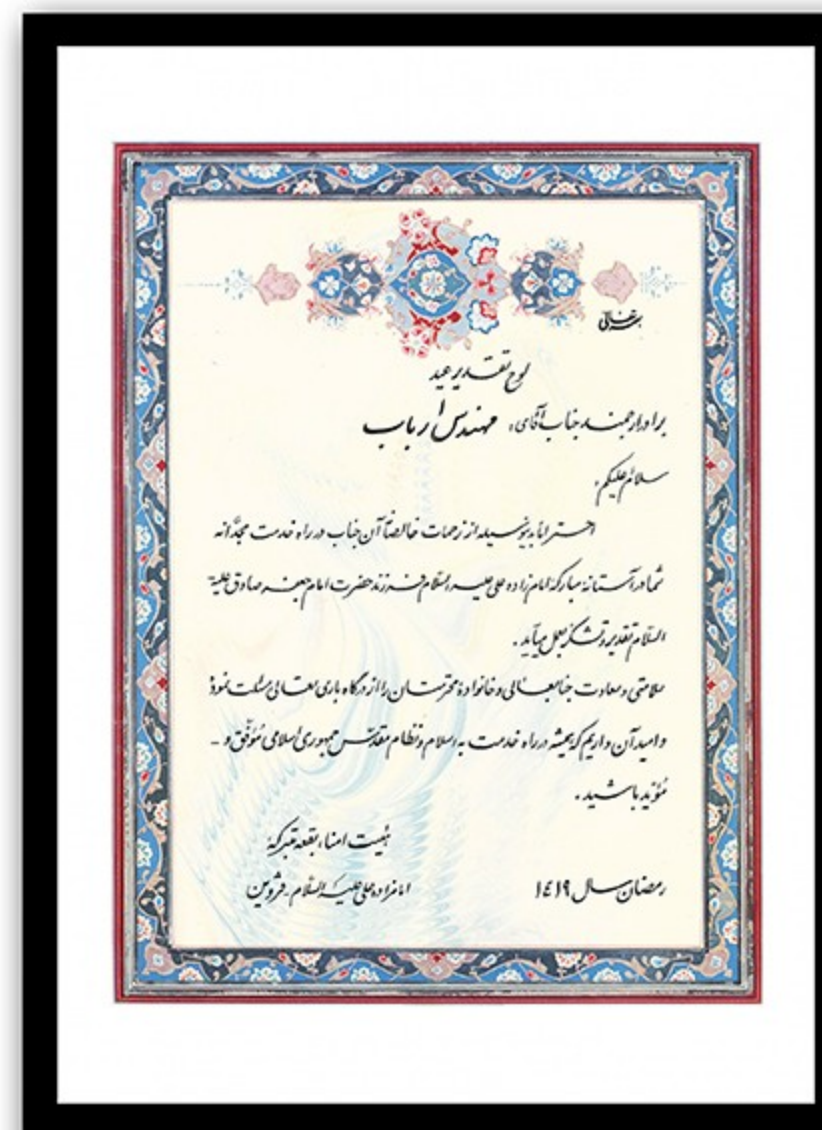 بسمه تعالی
لوح تقدیر عید
برادر ارجمند جناب آقای، مهندس ارباب
سلام علیکم،
احتراماً بدینوسیله از زحمات خالصاً آن جناب در راه خدمت مجدّانه
شما در آستانهٔ مبارکهٔ امام زاده علی علیه السّلام فرزند حضرت امام جعفر صادق علیه
السّلام تقدیر و تشکر بعمل میآید.
سلامتی و سعادت جنابعالی و خانوادهٔ محترمتان را از درگاه باری تعالی مسئلت نموده
و امید آن داریم که همیشه در راه خدمت به اسلام و نظام مقدّس جمهوری اسلامی مُوَفّق و -
مُؤیّد باشید.
هیئت امناء بقعه متبرکهٔ
رمضان سال ۱٤۱۹ امامزاده علی علیه السّلام - قزوین